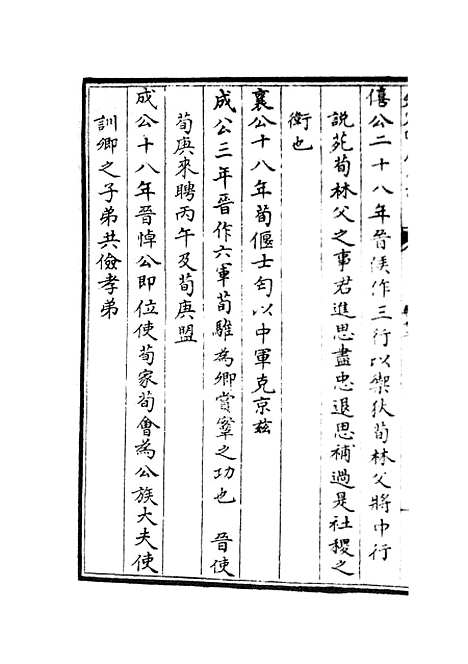 僖公二十八年晉侯作三行以禦狄荀林父將中行
說苑荀林父之事君進思盡忠退思補過是社稷之
衛也
襄公十八年荀偃士匄以中軍克京茲
成公三年晉作六軍荀騅為卿賞鞌之功也 晉使
荀庚來聘丙午及荀庚盟
成公十八年晉悼公即位使荀家荀會為公族大夫使
訓卿之子弟共儉孝弟